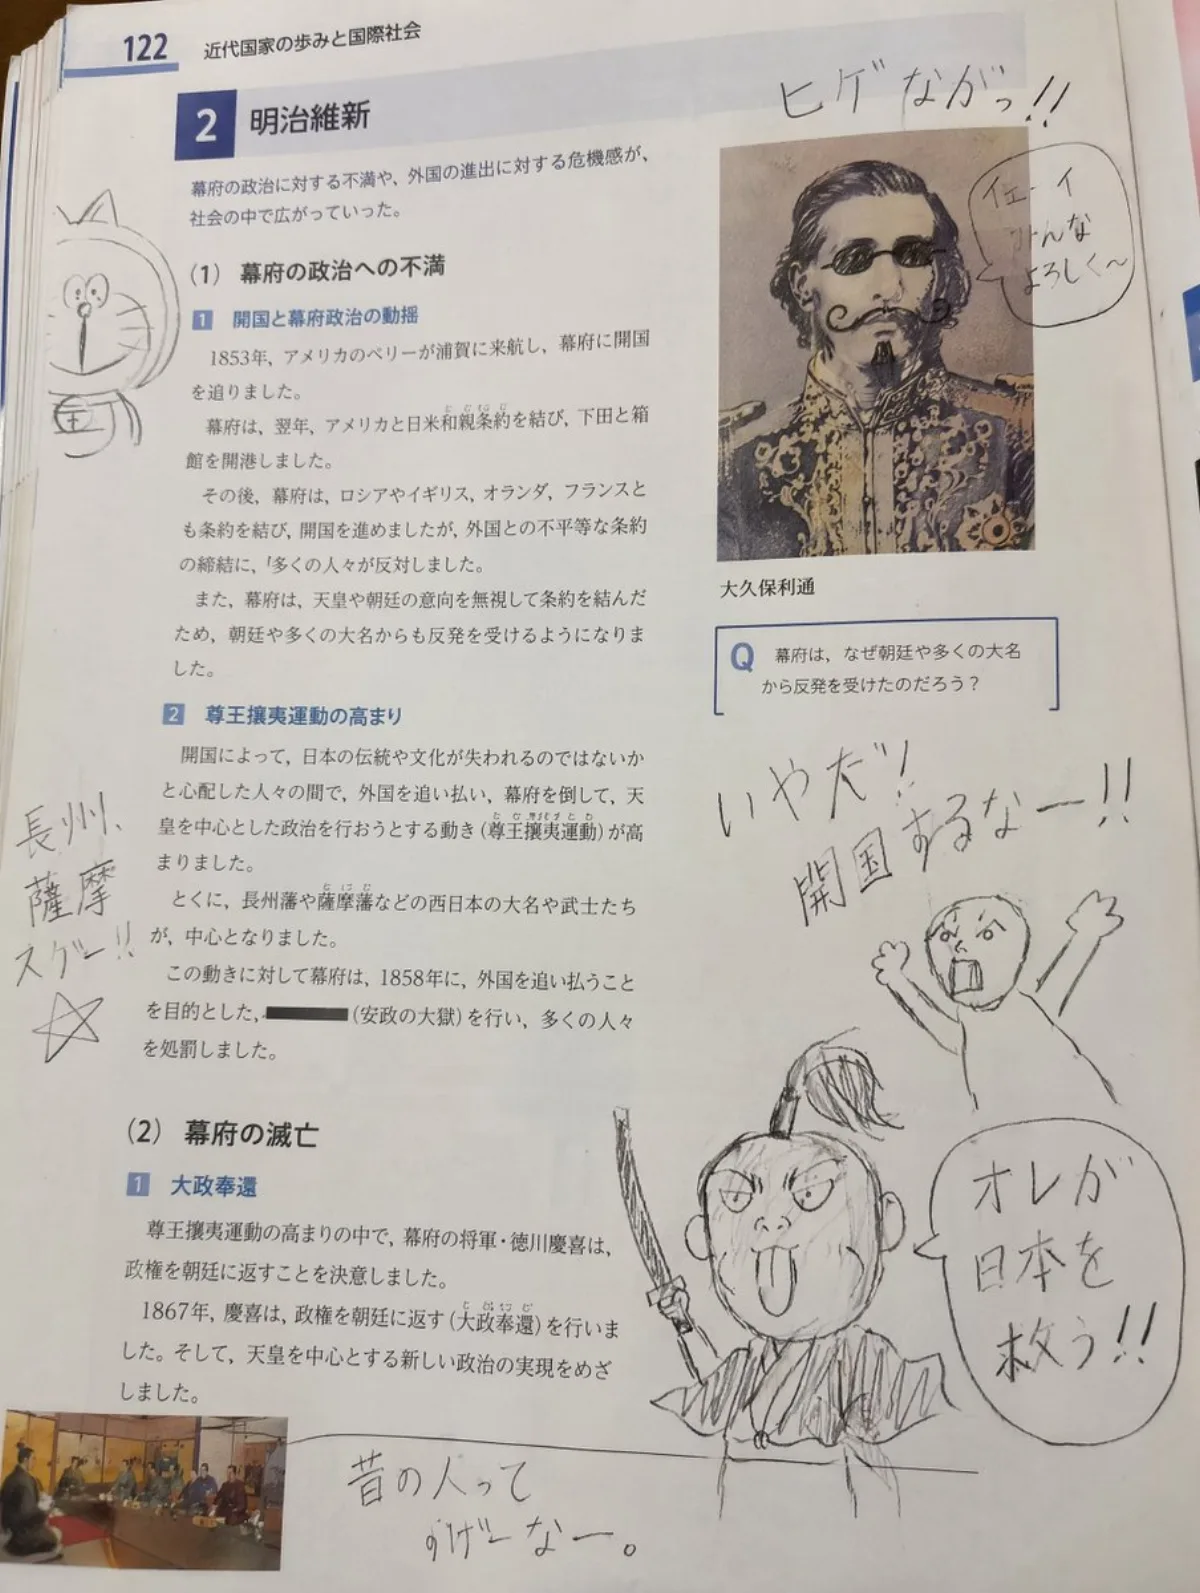 122 近代国家の歩みと国際社会
2 明治維新
幕府の政治に対する不満や、外国の進出に対する危機感が、
社会の中で広がっていった。
(1) 幕府の政治への不満
1 開国と幕府政治の動揺
1853年，アメリカのペリーが浦賀に来航し，幕府に開国
を迫りました。
幕府は，翌年，アメリカと日米和親条約を結び，下田と箱
館を開港しました。
その後，幕府は，ロシアやイギリス，オランダ，フランスと
も条約を結び，開国を進めましたが，外国との不平等な条約
の締結に，「多くの人々が反対しました。
また，幕府は，天皇や朝廷の意向を無視して条約を結んだ
ため，朝廷や多くの大名からも反発を受けるようになりま
した。
2 尊王攘夷運動の高まり
開国によって，日本の伝統や文化が失われるのではないか
と心配した人々の間で，外国を追い払い，幕府を倒して，天
皇を中心とした政治を行おうとする動き（尊王攘夷運動）が高
まりました。
とくに，長州藩や薩摩藩などの西日本の大名や武士たち
が，中心となりました。
この動きに対して幕府は，1858年に，外国を追い払うこと
を目的とした，（安政の大獄）を行い，多くの人々
を処罰しました。
(2) 幕府の滅亡
1 大政奉還
尊王攘夷運動の高まりの中で，幕府の将軍・徳川慶喜は，
政権を朝廷に返すことを決意しました。
1867年，慶喜は，政権を朝廷に返す（大政奉還）を行いま
した。そして，天皇を中心とする新しい政治の実現をめざ
しました。
長州、
薩摩
スゲー!!
ヒゲながっ!!
イェーイ
みんな
よろしく〜
大久保利通
Q 幕府は，なぜ朝廷や多くの大名
から反発を受けたのだろう？
いやだ!
開国するなー!!
オレが
日本を
救う!!
昔の人って
すげーなー。